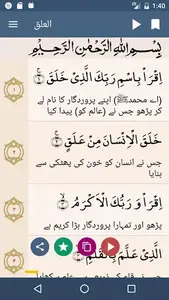 1:40
العلق
بِسْمِ اللهِ الرَّحْمٰنِ الرَّحِيْمِ
اِقْرَاْ بِاسْمِ رَبِّكَ الَّذِىْ خَلَقَ ۚ ﴿۱﴾
(اے محمدﷺ) اپنے پروردگار کا نام لے
کر پڑھو جس نے (عالم کو) پیدا کیا
خَلَقَ الْاِنْسَانَ مِنْ عَلَقٍ ۚ ﴿۲﴾
جس نے انسان کو خون کی پھٹکی سے
بنایا
اِقْرَاْ وَ رَبُّكَ الْاَكْرَمُ ۙ ﴿۳﴾
پڑھو اور تمہارا پروردگار بڑا کریم ہے
الَّذِىْ عَلَّمَ بِالْقَلَمِ ۙ